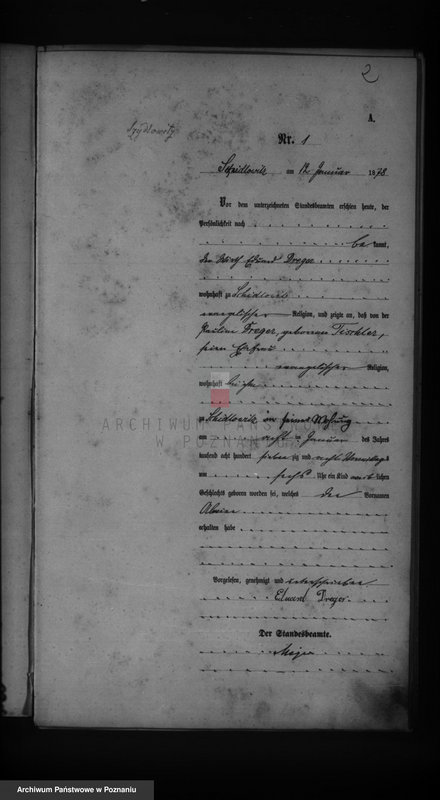 2
A.
Szydłowitz
Nr. 1
Schidlowitz am 12 Januar 1878
Vor dem unterzeichneten Standesbeamten erschien heute, der
Persönlichkeit nach
be kannt,
der Wirth Eduard Dreger
wohnhaft zu Schidlowitz
evangelischer Religion, und zeigte an, daß von der
Pauline Dreger, geborenen Tischler,
seiner Ehefrau
evangelischer Religion,
wohnhaft bei ihm
zu Schidlowitz in seiner Wohnung
am acht Januar des Jahres
tausend acht hundert sieben zig und acht Vormittags
um sechs Uhr ein Kind männlichen
Geschlechts geboren worden sei, welches den Vornamen
erhalten habe
Vorgelesen, genehmigt und unterschrieben
Eduard Dreger.
Der Standesbeamte.
ARCHIWUM PAŃSTWOWE
W POZNANIU
Archiwum Państwowe w Poznaniu